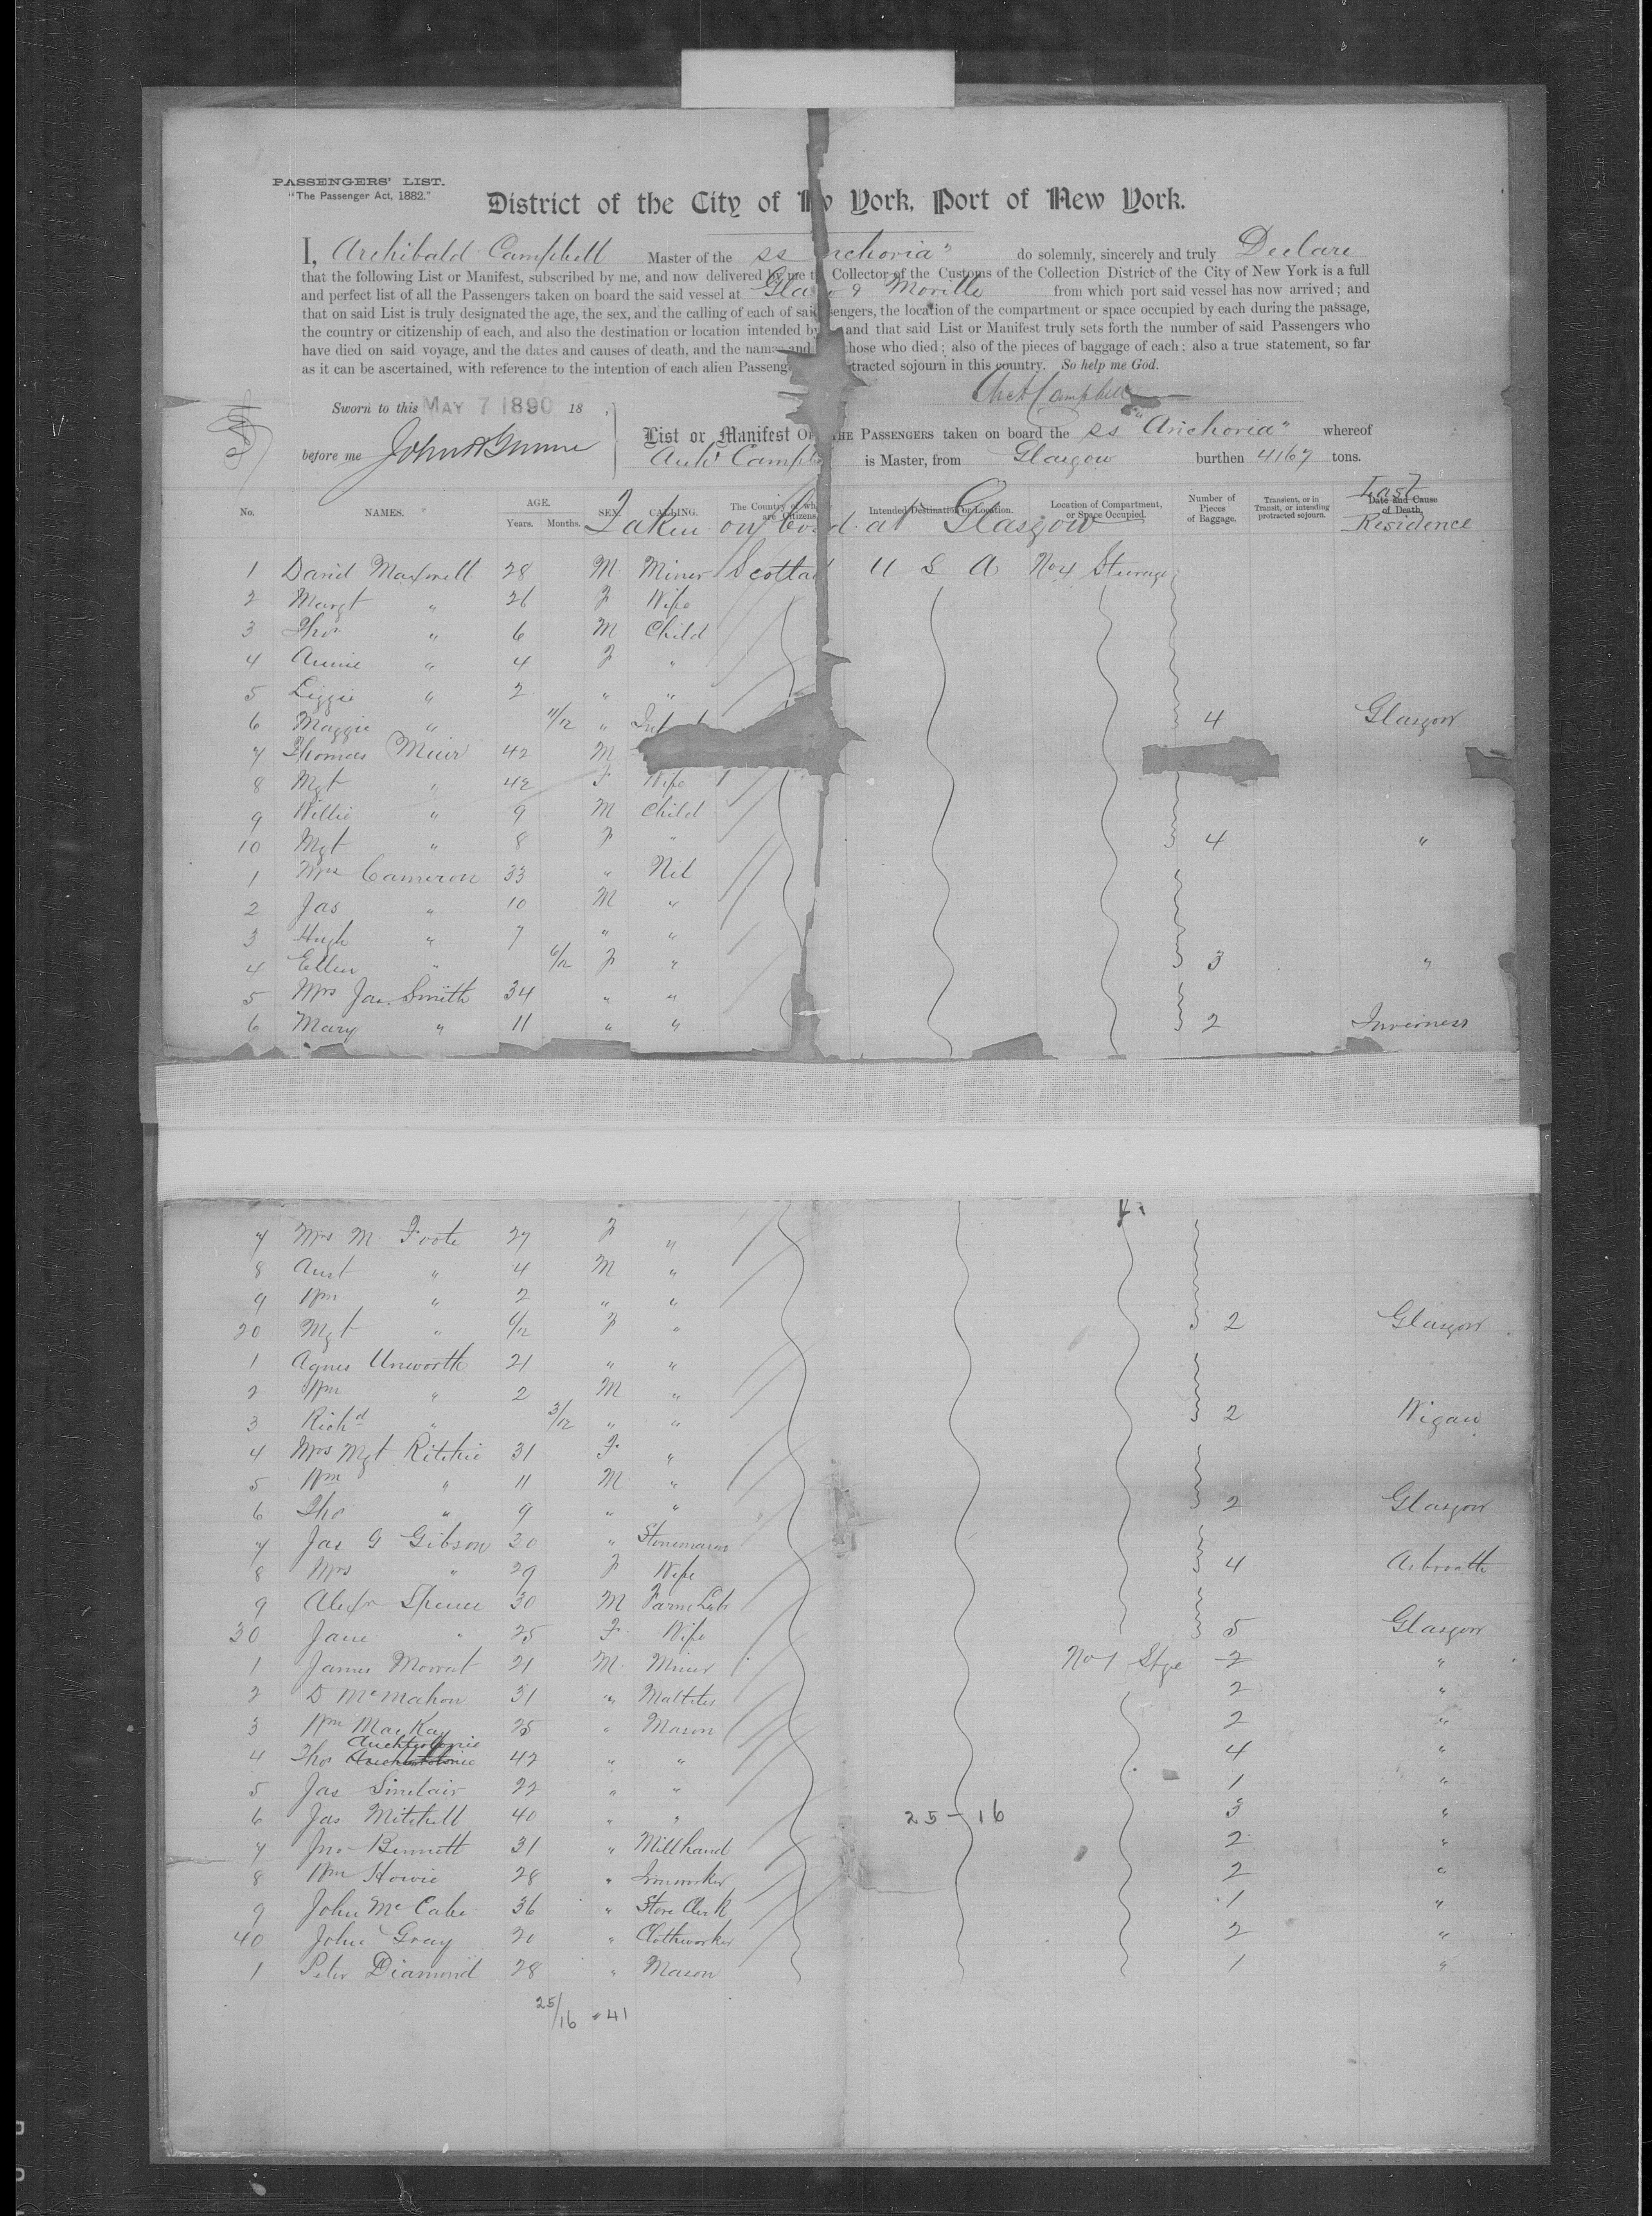 PASSENGERS' LIST.
"The Passenger Act, 1882."
District of the City of N w York, Port of New York.
I, Archibald Campbell Master of the ss nchoria" do solemnly, sincerely and truly Declare
that the following List or Manifest, subscribed by me, and now delivered by me t Collector of the Customs of the Collection District of the City of New York is a full
and perfect list of all the Passengers taken on board the said vessel at Gla w & Moville from which port said vessel has now arrived; and
that on said List is truly designated the age, the sex, and the calling of each of said sengers, the location of the compartment or space occupied by each during the passage,
the country or citizenship of each, and also the destination or location intended by and that said List or Manifest truly sets forth the number of said Passengers who
have died on said voyage, and the dates and causes of death, and the names and those who died; also of the pieces of baggage of each; also a true statement, so far
as it can be ascertained, with reference to the intention of each alien Passeng tracted sojourn in this country. So help me God.
Arch Campbell
Sworn to this MAY 7 1890 18 .
before me
List or Manifest OF THE PASSENGERS taken on board the ss "Anchoria" whereof
Archd Campbe is Master, from Glasgow burthen 4167 tons.
No. NAMES. AGE. Years. Months. SEX. CALLING. The Country of wh are Citizens. Intended Destination or Location. Location of Compartment, or Space Occupied. Number of Pieces of Baggage. Transient, or in Transit, or intending protracted sojourn. Date and Cause of Death.
Last Residence
Taken on board at Glasgow
1 David Maxwell 28 M Miner Scotlan U S A No 4 Steerage
2 Margt " 26 F Wife
3 Thos " 6 M Child
4 Annie " 4 F "
5 Lizzie " 2 " "
6 Maggie " 11/12 " Inf 4 Glasgow
7 Thomas Muir 42 M
8 Mgt " 42 F Wife
9 Willie " 9 M Child
10 Mgt " 8 F " 4 "
1 Mrs Cameron 33 " Nil
2 Jas " 10 M "
3 Hugh " 7 " "
4 Ellen " 6/12 F " 3 "
5 Mrs Jas. Smith 34 " "
6 Mary " 11 " " 2 Inverness
7 Mrs M Foote 27 F "
8 " 4 M "
9 Wm " 2 " "
20 Mgt " 6/12 F " 2 Glasgow
1 Agnes Unsworth 21 " "
2 Wm " 2 M "
3 Richd " 3/12 " " 2 Wigan
4 Mrs Mgt Ritchie 31 F "
5 Wm " 11 M "
6 Tho " 9 " " 2 Glasgow
7 Jas G Gibson 30 " Stonemason
8 Mrs " 29 F Wife 4 Arbroath
9 Alexr Spence 30 M Farm Lab
30 Jane " 25 F Wife 5 Glasgow
1 James Mowat 21 M Miner No 1 Stge 2 "
2 D McMahon 31 " 2 "
3 Wm MacKay 25 " Mason 2 "
Auchterlonie
4 Tho 42 " " 4 "
5 Jas Sinclair 22 " " 1 "
6 Jas Mitchell 40 " " 25-16 3 "
7 Jno Bennett 31 " Millhand 2 "
8 Wm Howie 28 " Ironworker 2 "
9 John McCabe 36 " Store Clerk 1 "
40 John Gray 20 " Clothworker 2 "
1 Peter Diamond 28 " Mason 1 "
25/16 = 41